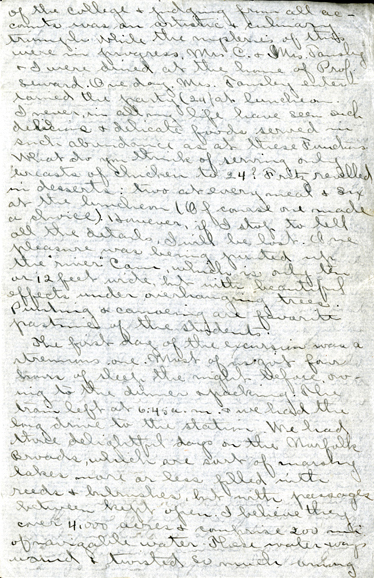 of the college & judging from all ac-
counts was an artistic & culinary
triumph. While the mysteries of this
were in progress, Mr. C. & Mrs. Tansley
& I were dined at the home of Prof.
Seward. One day, Mrs. Tansley enter
tained the party (24) at luncheon.
I never in all my life have seen such
delicious & delicate foods served in
such abundance as at these functions
What do you think of serving only
breasts of chicken to 24? Fifth
in desserts: two at every meal & six
at the luncheon (Of course one made
a choice). However, if I stop to tell
all the details, I will be lost. One
pleasure was being punted up
the "river" Cam, which is only ten
or 12 feet wide, but with beautiful
effects under overhanging trees.
Punting & canoeing are favorite
pastimes of the students.
The first day of the excursion was a
strenuous one. Most of us got four
hours of sleep the night before, ow-
ing to the dinner & packing. The
train left at 6:45 a.m. & we had the
long drive to the station. We had
three delightful days on the Norfolk
Broads, which are sort of marshy
lakes more or less filled with
reeds & bulrushes, but with passages
between kept open. I believe they
cover 4,000 acres & comprise 200 mi
of navigable water. These water ways
wound & twisted so much among